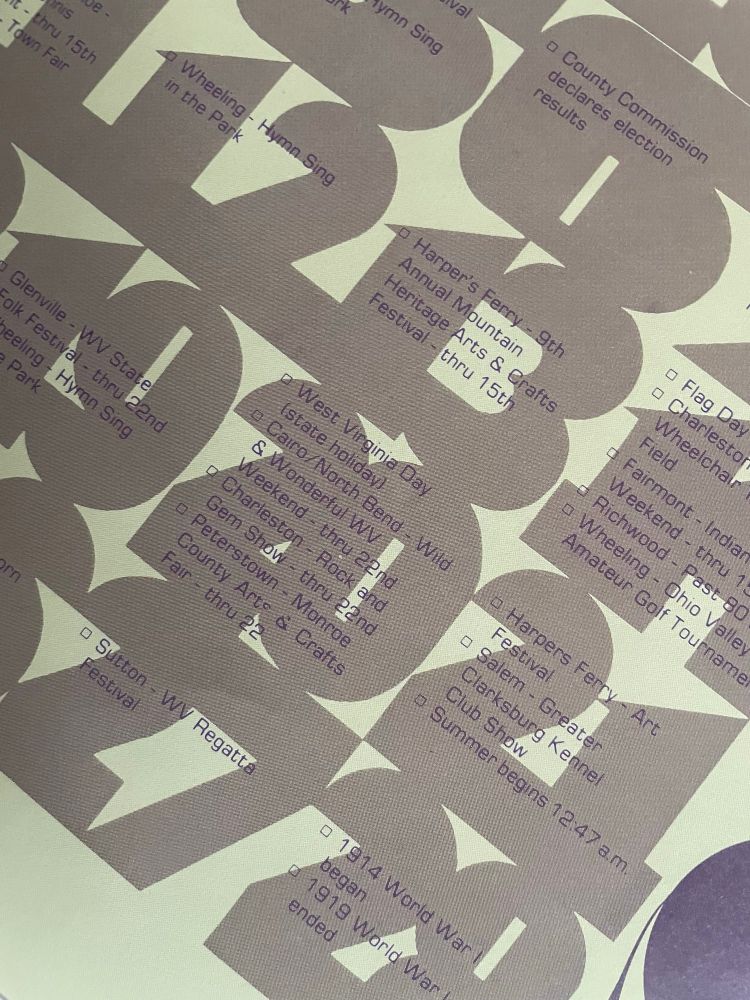 thru 15th
Town Fair
Hymn Sing
12
□ Wheeling - Hymn Sing
in the Park
□ County Commission
declares election
results
13
□ Harper's Ferry - 9th
Annual Mountain
Heritage Arts & Crafts
Festival - thru 15th
□ Flag Day
□ Charleston
Wheelchair
Field
□ Fairmont - Indian
Weekend - thru
□ Richwood - Past 80
□ Wheeling - Ohio Valley
Amateur Golf
19
□ Glenville - WV State
Folk Festival - thru 22nd
Wheeling - Hymn Sing
Park
20
□ West Virginia Day
(state holiday)
□ Cairo/North Bend - Wild
& Wonderful WV
Weekend - thru 22nd
□ Charleston - Rock and
Gem Show - thru 22nd
□ Peterstown - Monroe
County Arts & Crafts
Fair - thru 22
21
□ Harpers Ferry - Art
Festival
□ Salem - Greater
Clarksburg Kennel
Club Show
□ Summer begins 12:47 a.m.
27
□ Sutton - WV Regatta
Festival
28
□ 1914 World War I
began
□ 1919 World War I
ended